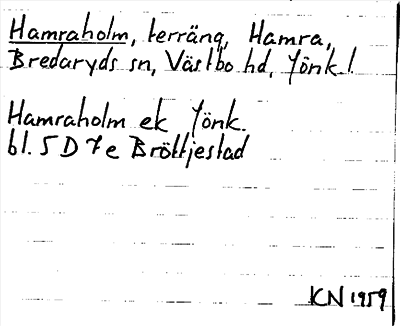 Hamraholm, terräng, Hamra,
Bredaryds sn, Västbo hd, Jönk. l
Hamraholm ek Jönk.
bl. 5 D 7 e Bröttjestad
KN 1959